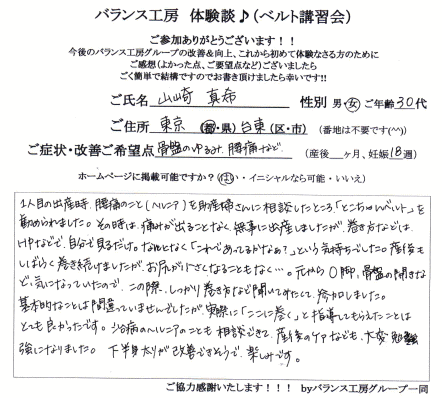 バランス工房 体験談♪(ベルト講習会)
ご参加ありがとうございます!!
今後のバランス工房グループの改善&向上、これから初めて体験なさる方のために
ご感想(よかった点、ご要望点など)ございましたら
ごく簡単で結構ですのでお書き頂けましたら幸いです!!
ご氏名 山崎 真希 性別 男・女 ご年齢 30代
ご住所 東京 (都・県) 台東 (区・市) (番地は不要です(^^))
ご症状・改善ご希望点 骨盤のゆるみ、腰痛など (産後 ヶ月、妊娠 18週)
ホームページに掲載可能ですか?(はい・イニシャルなら可能・いいえ)
1人目の出産時、腰痛のこと(ヘルニア)を助産師さんに相談したところ「とこちゃんベルト」を
勧められました。その時は、痛みが出ることなく無事に出産しましたが、巻き方などは
HPなどで、自分で見るだけ。なんとなく「これであってるかなぁ?」という気持ちでした。産後も
しばらく巻き続けましたが、お尻が小さくなることもなく…。元からO脚、骨盤の開きな
ど、気になっていたので、この際、しっかり巻き方など聞いてみたくて、参加しました。
基本的なことは間違っていませんでしたが、実際に「ここに巻く」と指導してもらえたことは
とても良かったです。治病のヘルニアのことも相談できて、産後のケアなども、大変勉
強になりました。下半身太りが改善できそうで、楽しみです。
ご協力感謝いたします!!! byバランス工房グループ一同